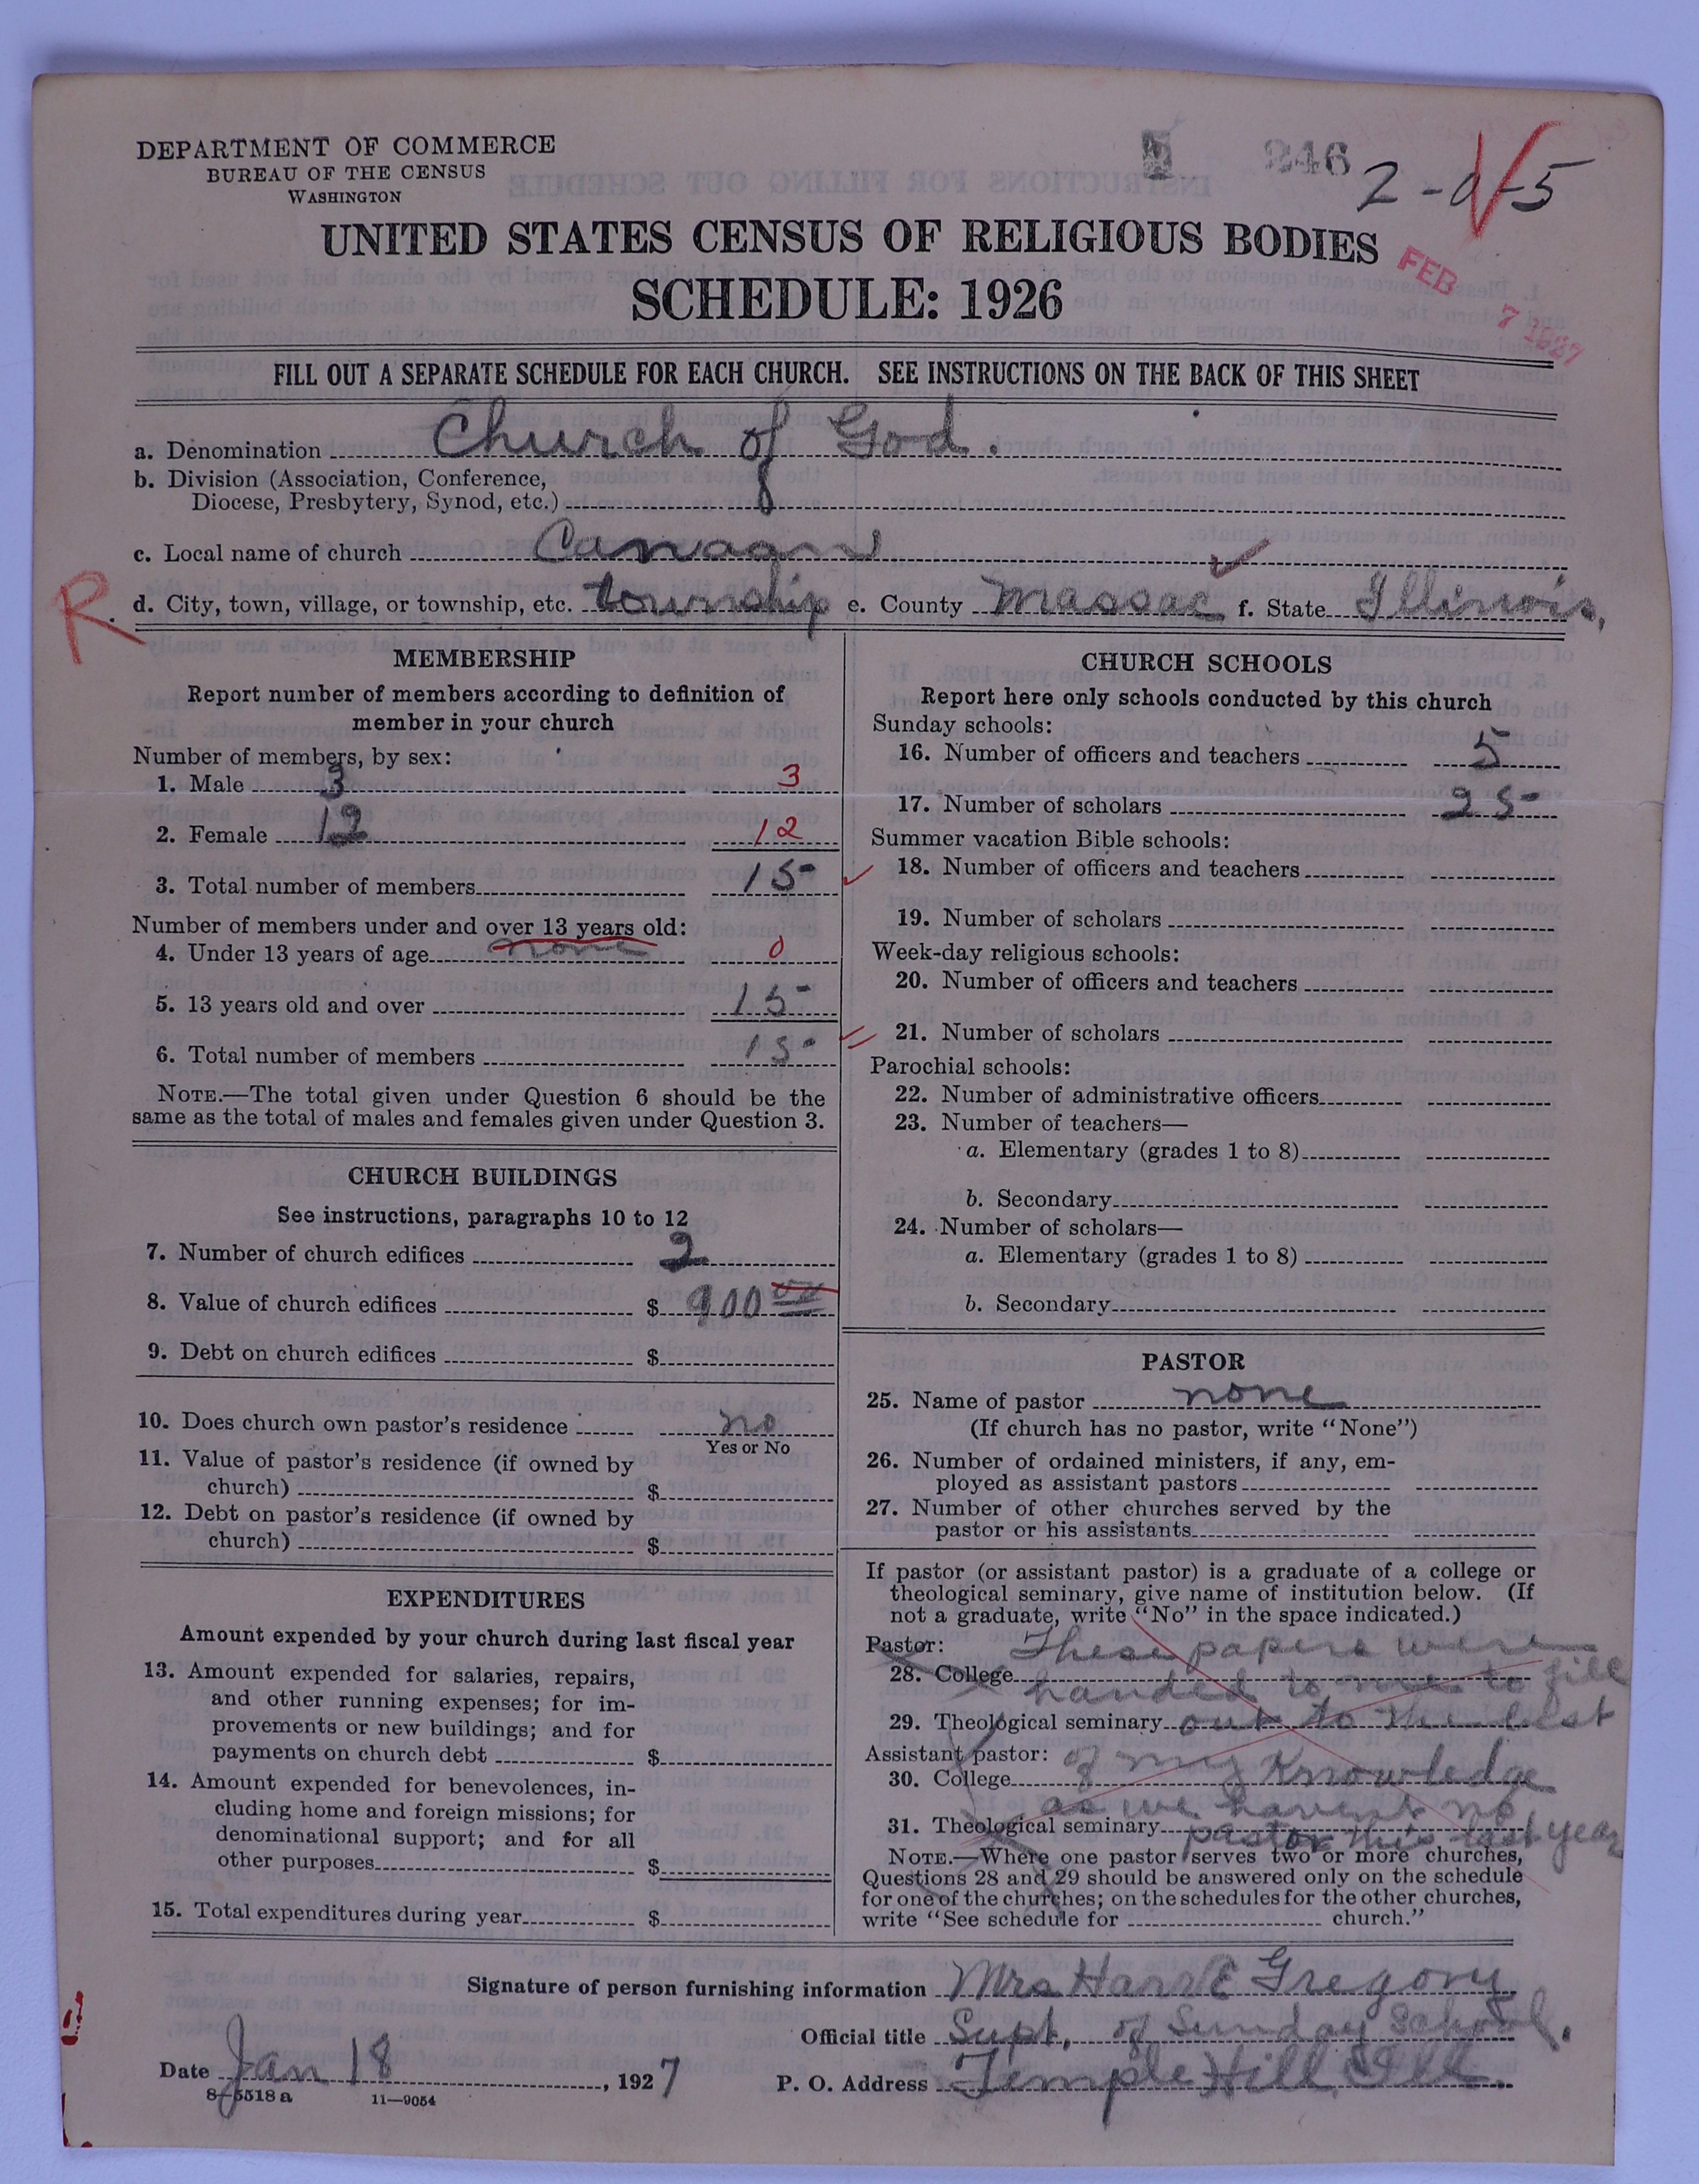 DEPARTMENT OF COMMERCE
BUREAU OF THE CENSUS
WASHINGTON
246
2-0-5
UNITED STATES CENSUS OF RELIGIOUS BODIES
SCHEDULE: 1926
FEB 7 1927
FILL OUT A SEPARATE SCHEDULE FOR EACH CHURCH. SEE INSTRUCTIONS ON THE BACK OF THIS SHEET
a. Denomination Church of God.
b. Division (Association, Conference,
Diocese, Presbytery, Synod, etc.)
c. Local name of church Canaan
R.
d. City, town, village, or township, etc. township e. County Massac f. State Illinois,
MEMBERSHIP
Report number of members according to definition of
member in your church
Number of members, by sex:
1. Male 3 3
2. Female 12 12
3. Total number of members 15
Number of members under and over 13 years old:
4. Under 13 years of age none 0
5. 13 years old and over 15
6. Total number of members 15
NOTE.—The total given under Question 6 should be the
same as the total of males and females given under Question 3.
CHURCH BUILDINGS
See instructions, paragraphs 10 to 12
7. Number of church edifices 2
8. Value of church edifices $ 900 00
9. Debt on church edifices $
10. Does church own pastor's residence no
Yes or No
11. Value of pastor's residence (if owned by
church) $
12. Debt on pastor's residence (if owned by
church) $
EXPENDITURES
Amount expended by your church during last fiscal year
13. Amount expended for salaries, repairs,
and other running expenses; for im-
provements or new buildings; and for
payments on church debt $
14. Amount expended for benevolences, in-
cluding home and foreign missions; for
denominational support; and for all
other purposes $
15. Total expenditures during year $
CHURCH SCHOOLS
Report here only schools conducted by this church
Sunday schools:
16. Number of officers and teachers 5
17. Number of scholars 25
Summer vacation Bible schools:
18. Number of officers and teachers
19. Number of scholars
Week-day religious schools:
20. Number of officers and teachers
21. Number of scholars
Parochial schools:
22. Number of administrative officers
23. Number of teachers—
a. Elementary (grades 1 to 8)
b. Secondary
24. Number of scholars—
a. Elementary (grades 1 to 8)
b. Secondary
PASTOR
25. Name of pastor none
(If church has no pastor, write "None")
26. Number of ordained ministers, if any, em-
ployed as assistant pastors
27. Number of other churches served by the
pastor or his assistants
If pastor (or assistant pastor) is a graduate of a college or
theological seminary, give name of institution below. (If
not a graduate, write "No" in the space indicated.)
Pastor: These papers were
28. College handed to me to fill
29. Theological seminary out to the best
Assistant pastor: of my Knowledge
30. College
as we havent no
31. Theological seminary pastor this last year
NOTE.—Where one pastor serves two or more churches,
Questions 28 and 29 should be answered only on the schedule
for one of the churches; on the schedules for the other churches,
write "See schedule for church."
Signature of person furnishing information Mrs Gregory
Official title Supt. of Sunday School.
Date Jan 18, 1927 P. O. Address Temple Hill, Ill.
8-5518 a 11—9054